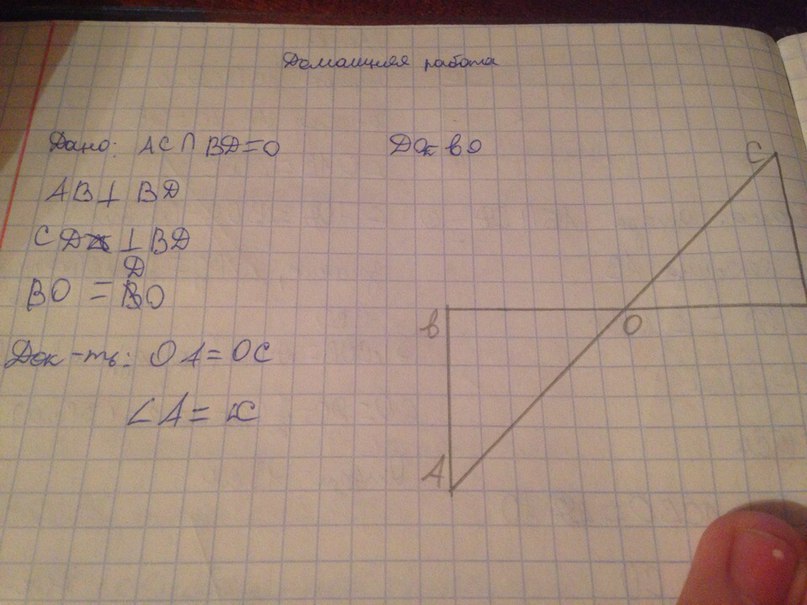 Домашняя работа
Дано: AC∩BD=O
Док во
AB⊥ BD
CD ⊥BD
BO = DO
Док-ть: OA=OC
∠A= ∠C
C
B
O
A